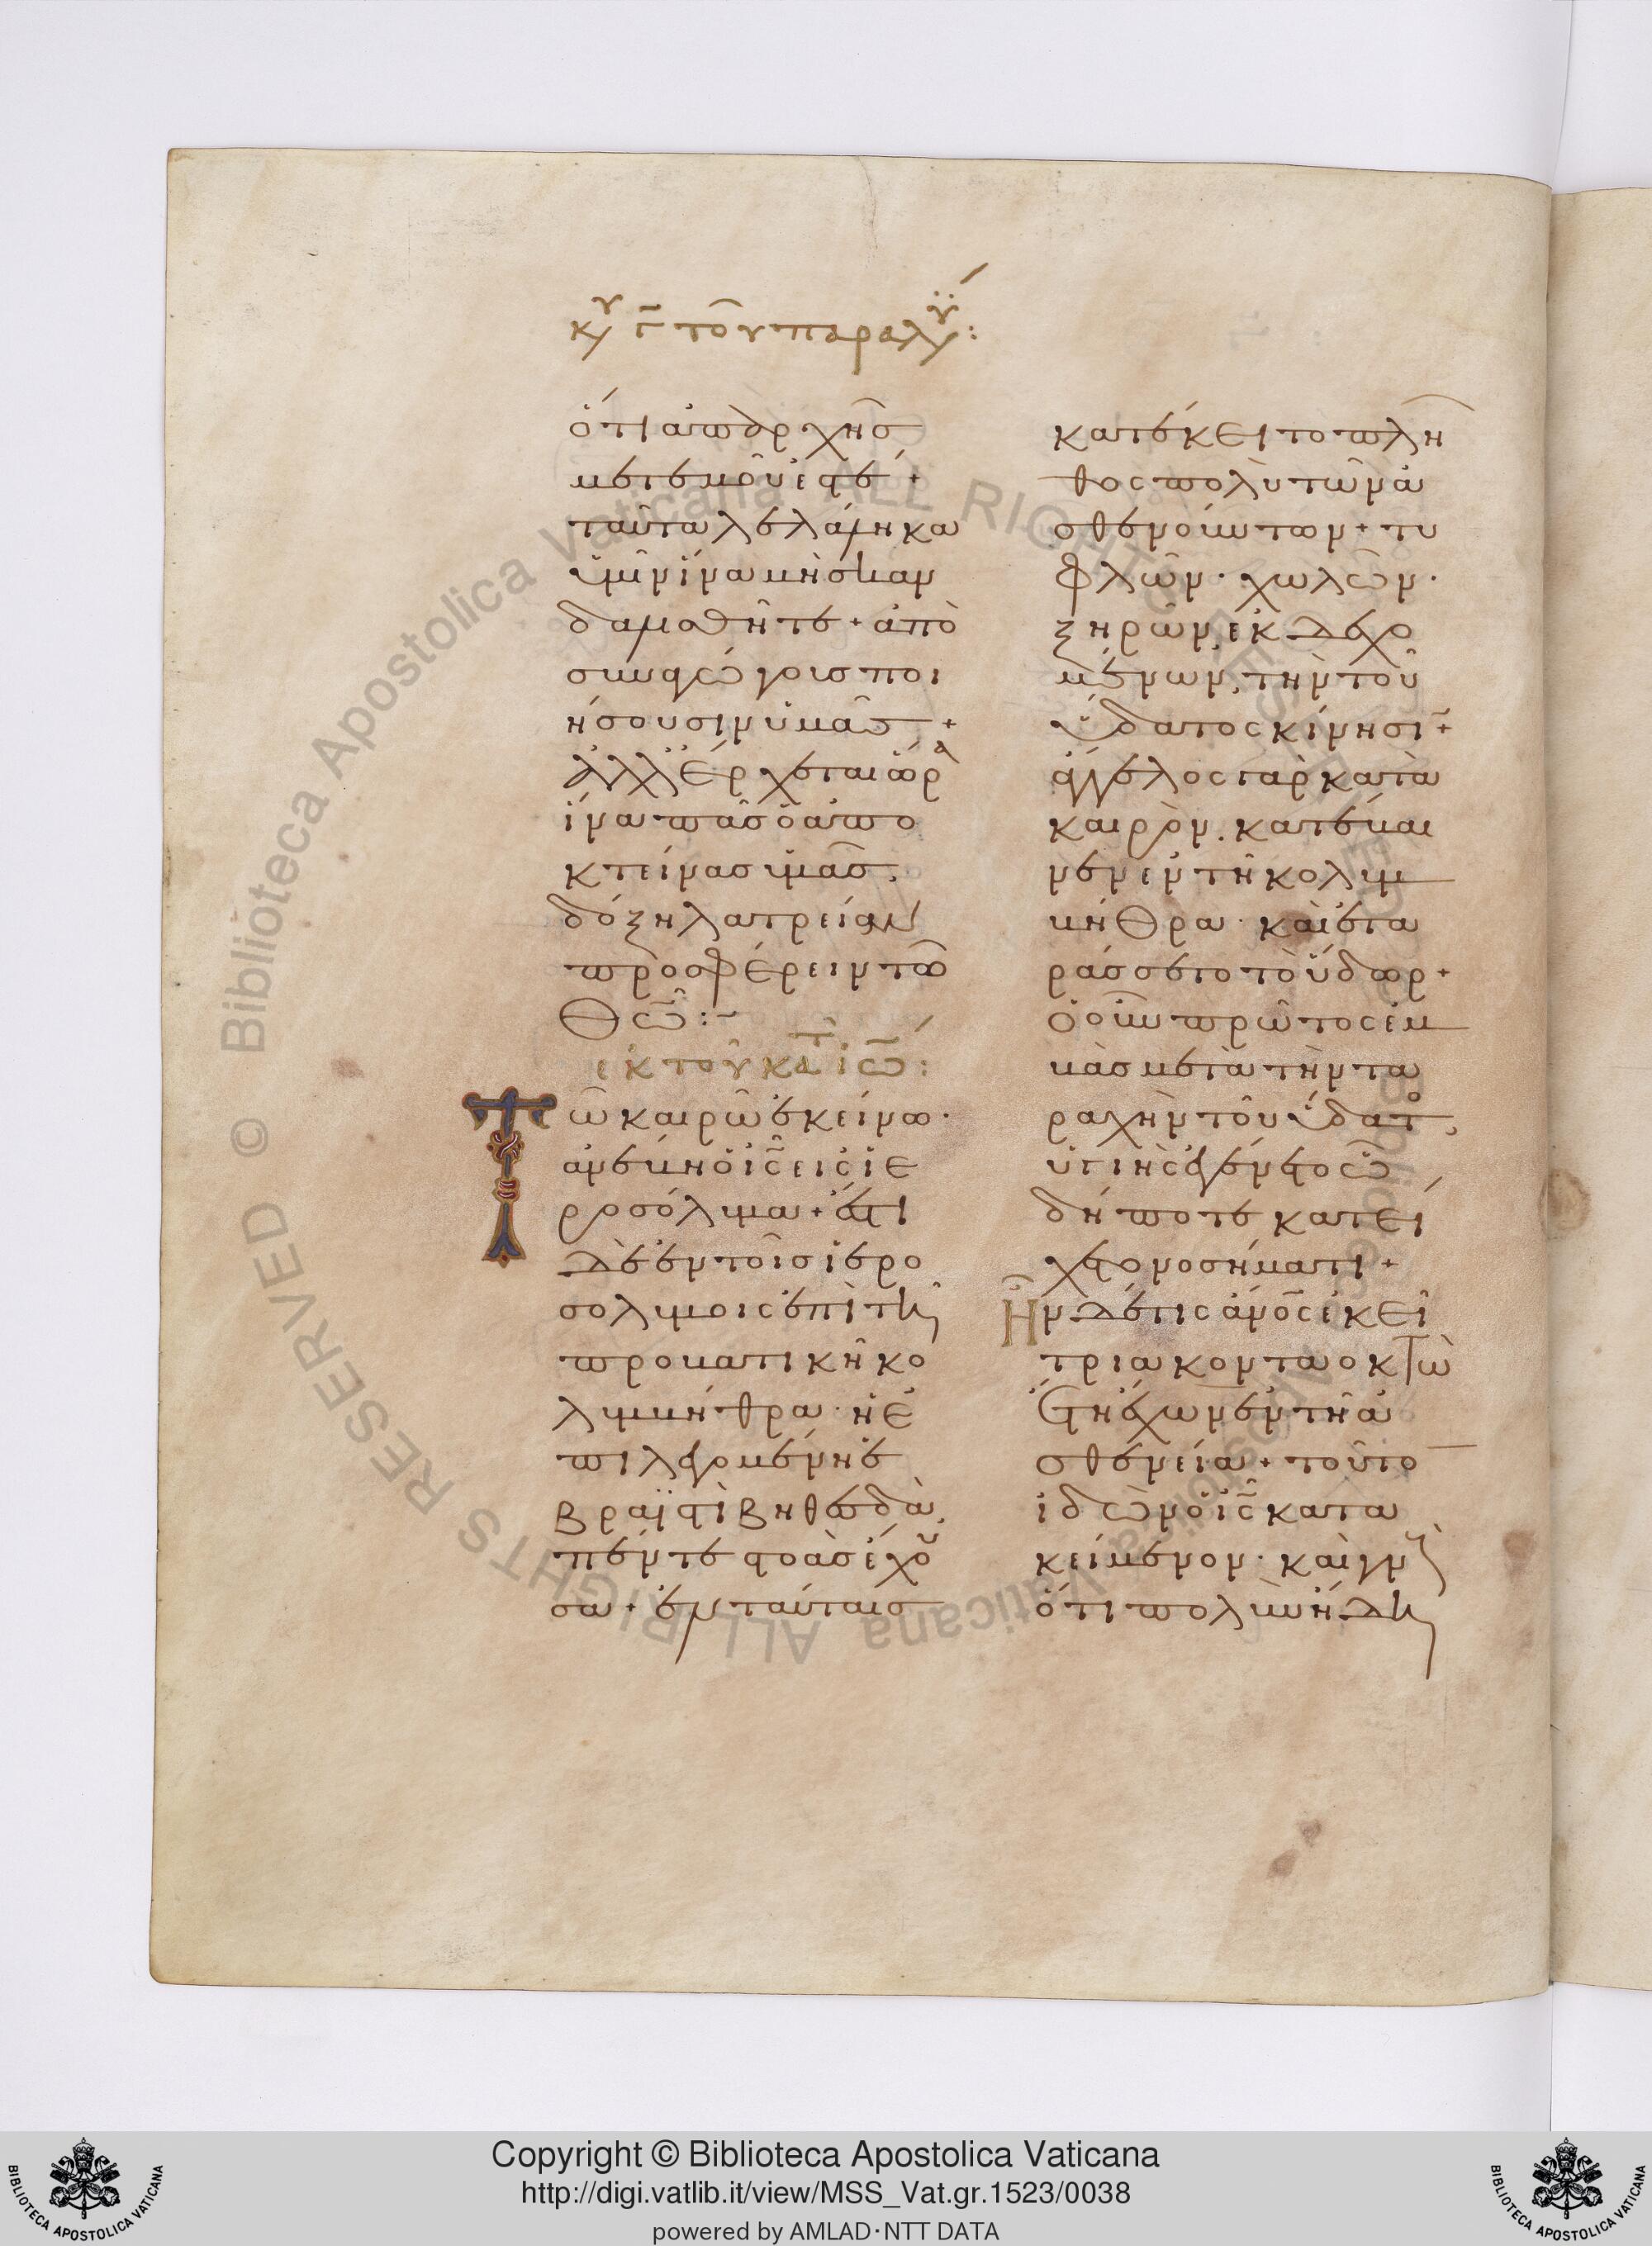 κυ γ̅ τοῦ παραλύ:
ὅτι ἀπαρχῆσ
μετεμοῦ ἐστέ +
ταῦτα λελάληκα
ὑμῖν ἵνα μὴ σκαν
δαλισθῆτε + ἀπο
συναγώγουσ ποι
ήσουσιν ὑμᾶσ +
ἀλλ ἔρχεται ὥρα
ἵνα πᾶσ ὁ ἀπο
κτείνασ ὑμᾶσ,
δόξη λατρείαν
προσφέρειν τῶ
θ̅ω̅ :~
ἐκ τοῦ κατ ἰω̅:
Τῶ καιρῶ ἐκείνω·
ἀνέβη ὁ ἰ̅ς̅ εἰς ἱε
ροσόλυμα + ἔστι
δὲ ἐν τοῖσ ἱερο
σολύμοις ἐπὶ τῆ
προβατικῆ κο
λυμβήθρα· ἡ ἐ
πιλεγομένη ἑ
βραϊστὶ βηθεσδὰ,
πέντε στοὰσ ἔχου
σα + ἐν ταύταισ
κατέκειτο πλῆ
θος πολὺ τῶν ἀ
σθενούντων + τυ
φλῶν· χωλῶν·
ξηρῶν, ἐκδεχο
μένων, τὴν τοῦ
ὕδατος κίνησιν +
ἄγγελος γὰρ κατὰ
καιρὸν, κατέβαι
νεν ἐν τῆ κολυμ
βήθρα· καὶ ἐτα
ράσσετο τὸ ὕδωρ +
ὁ οὖν πρῶτος ἐμ
βὰσ μετὰ τὴν τα
ραχὴν τοῦ ὕδατο,
ὑγιὴς ἐγένετο ὧ
δήποτε κατεί
χετο νοσήματι +
Ἦν δέ τις ἄν̅ο̅ς̅ ἐκεῖ
τριακονταοκτὼ
ἔτη ἔχων ἐν τῆ ἀ
σθενεία + τοῦτο
ἰδὼν ὁ ἰ̅ς̅ κατα
κείμενον· καὶ γν
ὅτι πολὺν ἤδη
© Biblioteca Apostolica Vaticana ALL RIGHTS RESERVED
Copyright © Biblioteca Apostolica Vaticana
http://digi.vatlib.it/view/MSS_Vat.gr.1523/0038
powered by AMLAD·NTT DATA
BIBLIOTECA APOSTOLICA VATICANA
BIBLIOTECA APOSTOLICA VATICANA